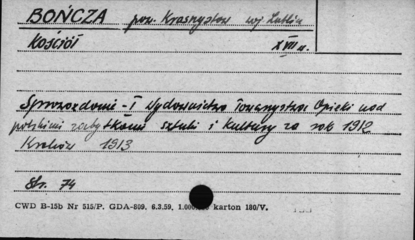 BOŃCZA pow. Krasnystaw woj. Lublin
Kościół XVII w.
Sprawozdanie - I Wydawnictwo Towarzystwa Opieki nad
polskimi zabytkami sztuki i kultury za rok 1912
Kraków 1913
Str. 74
CWD B-15b Nr 515/P. GDA-809. 6.3.59, karton 180/V.